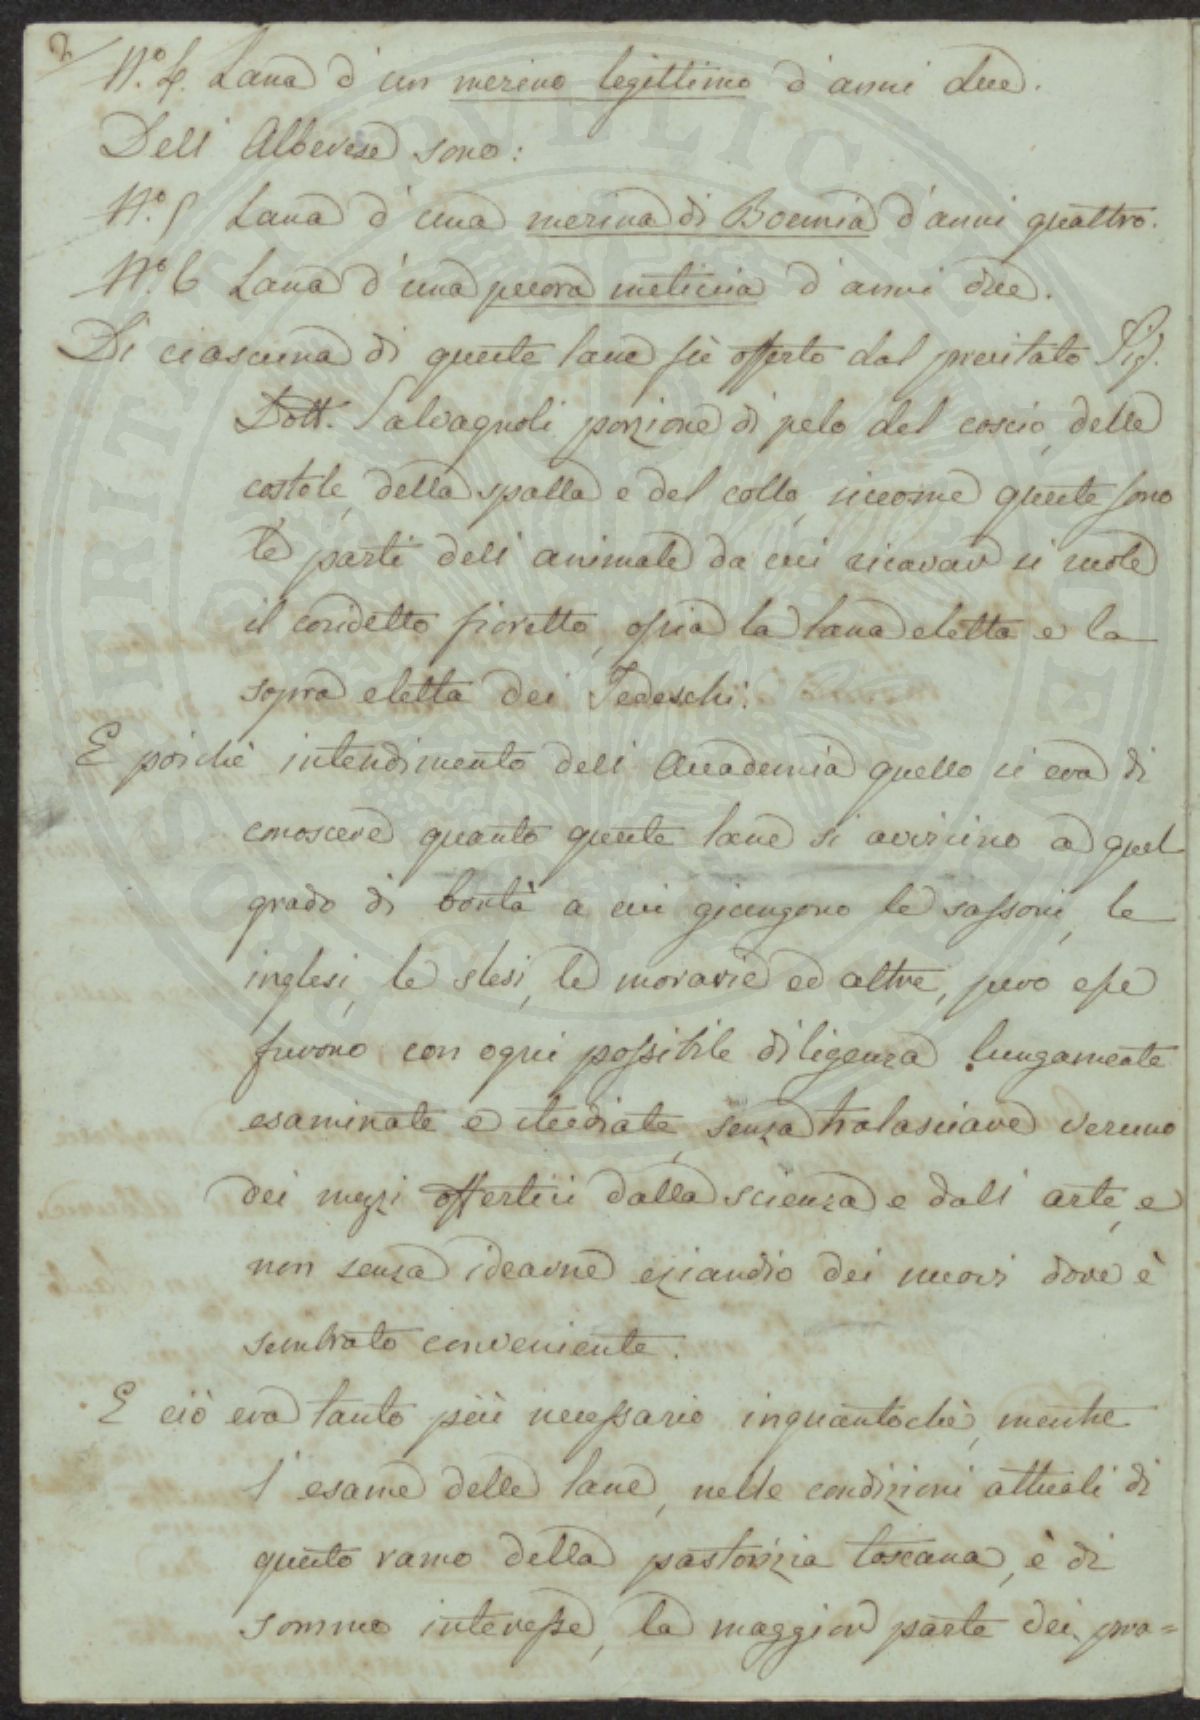 2/
N.o 4. Lana d'un merino legittimo d'anni due.
Dell'Alberese sono:
N.o 5 Lana d'una merina di Boemia d'anni quattro.
N.o 6 Lana d'una pecora meticcia d'anni due.
Di ciascuna di queste lane fù offerto dal precitato Sig.
Dott. Salvagnoli porzione di pelo del coscio, delle
costole, della spalla e del collo, siccome queste sono
le parti dell'animale da cui ricavar si suole
il cosidetto fioretto, ossia la lana eletta e la
sopra eletta dei Tedeschi.
E poichè intendimento dell'Accademia quello si era di
conoscere quanto queste lane si avvicino a quel
grado di bontà a cui giungono le sassoni, le
inglesi, le slesi, le moravie ed altre, però esse
furono con ogni possibile diligenza lungamente
esaminate e studiate, senza tralasciare veruno
dei mezzi offertici dalla scienza e dall'arte, e
non senza idearne eziandio dei nuovi dove è
sembrato conveniente.
E ciò era tanto più necessario inquantochè, mentre
l'esame delle lane, nelle condizioni attuali di
questo ramo della pastorizia toscana, è di
sommo interesse, la maggior parte dei pra=